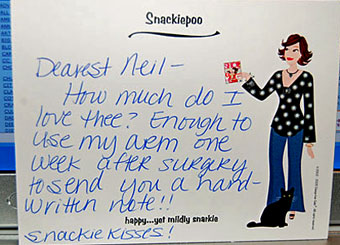 Snackiepoo
Dearest Neil-
How much do I
love thee? Enough to
use my arm one
week after surgery
to send you a hand-
written note!!
happy...yet mildly snarkie
Snackie Kisses!